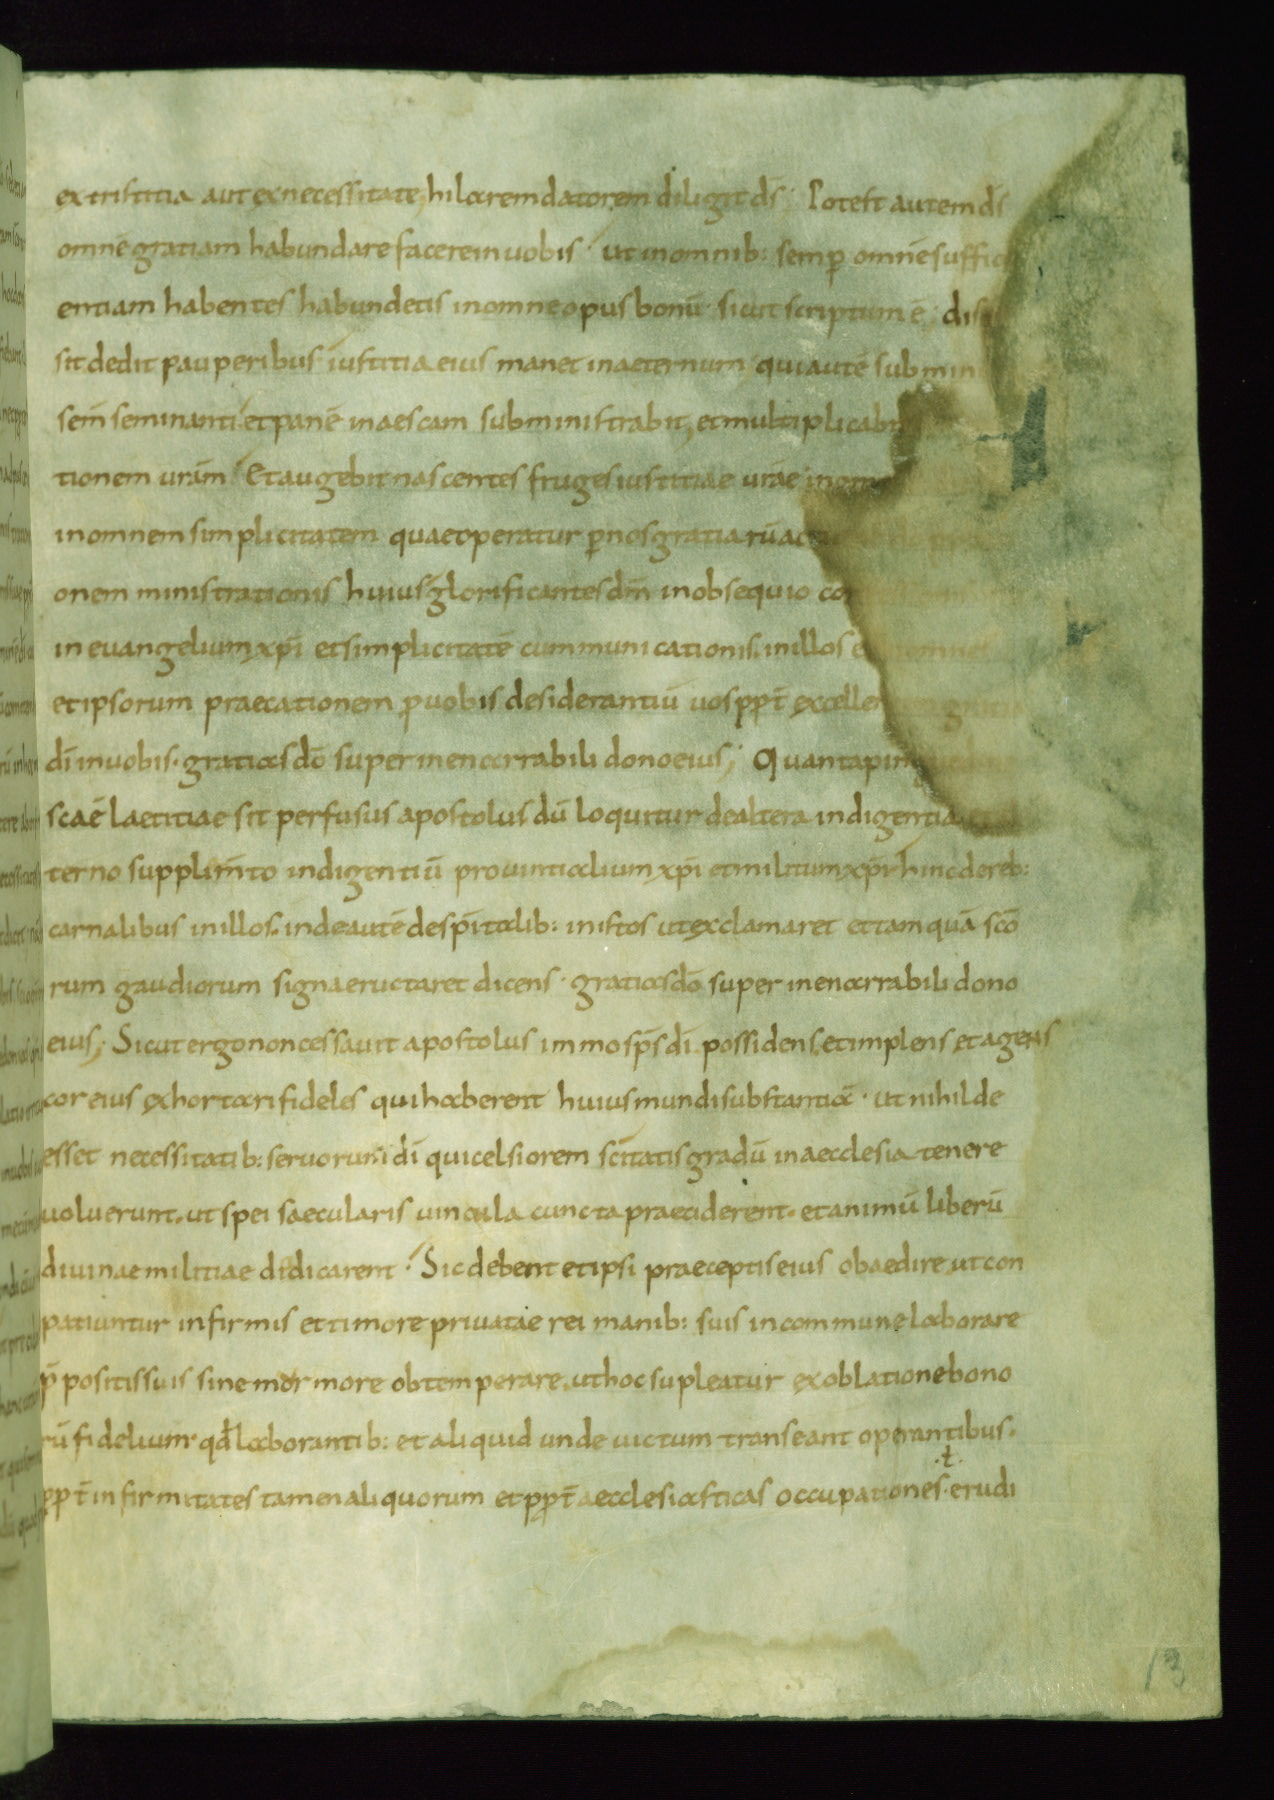 ex tristitia aut ex necessitate, hilarem datorem diligit ds̄; Potest autem ds̄
omnē gratiam habundare facere in uobis · ut in omnib: semp̄ omnē suffici
entiam habentes habundetis in omne opus bonū · sicut scriptum ē · dis
sit dedit pauperibus iustitia eius manet in aeternum, qui autē submin
sem̄ seminanti · et panē in aescam subministrabit, et multiplicabi
tionem urām Et augebit nascentes fruges iustitiae urae in om
in omnem simplicitatem quae operatur p̄ nos gratiarū ac
onem ministrationis huius glorificantes dm̄ in obsequio co
in euangelium xp̄i et simplicitatē cummunicationis in illos
et ipsorum praecationem p uobis desiderantiū uos pp̄t excellen
dī in uobis · gratias dō super inenarrabili dono eius; Quanta ping
scaē laetitiae sit perfusus apostolus dū loquitur de altera indigentia
terno supplem̄to indigentiū prouintialium xp̄i et militum xp̄i hinc de reb:
carnalibus in illos, inde autē de sp̄italib: in istos ut exclamaret et tamquā scō
rum gaudiorum signa eructaret dicens · gratias dō super inenarrabili dono
eius; Sicut ergo non cessauit apostolus immo sp̄s dī possidens et implens et agens
cor eius exhortari fideles qui haberent huius mundi substantiā · ut nihil de
esset necessitatib: seruorum dī qui celsiorem scītatis gradū in aecclesia tenere
uoluerunt, ut spei saecularis uincula cuncta praeciderent · et animū liberū
diuinae militiae didicarent · Sic debent et ipsi praeceptis eius obaedire ut con
patiuntur infirmis et timore priuatae rei manib: suis in commune laborare
p̄positis suis sine mormore obtemperare, ut hoc supleatur ex oblatione bono
rū fidelium · qd̄ laborantib: et aliquid unde uictum transeant operantibus ·
pp̄t infirmitates tamen aliquorum et pp̄t aecclesiasticas occupationes · erudi
·ł·
13